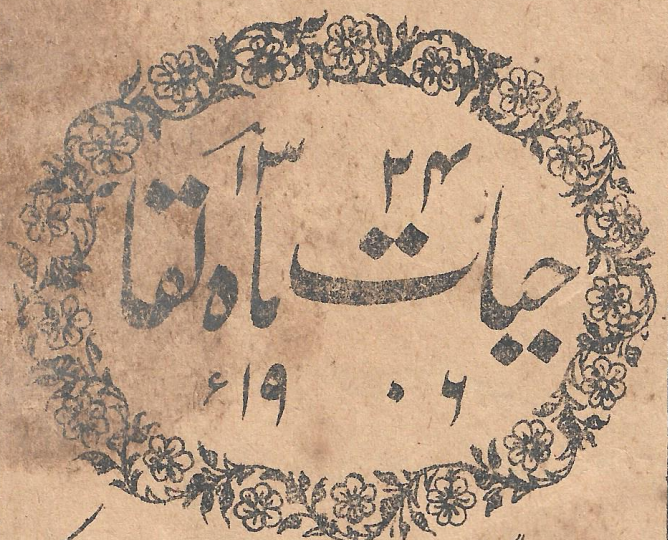 ۱۳۲۴
حیات ماہ لقا
۱۹۰۶ء